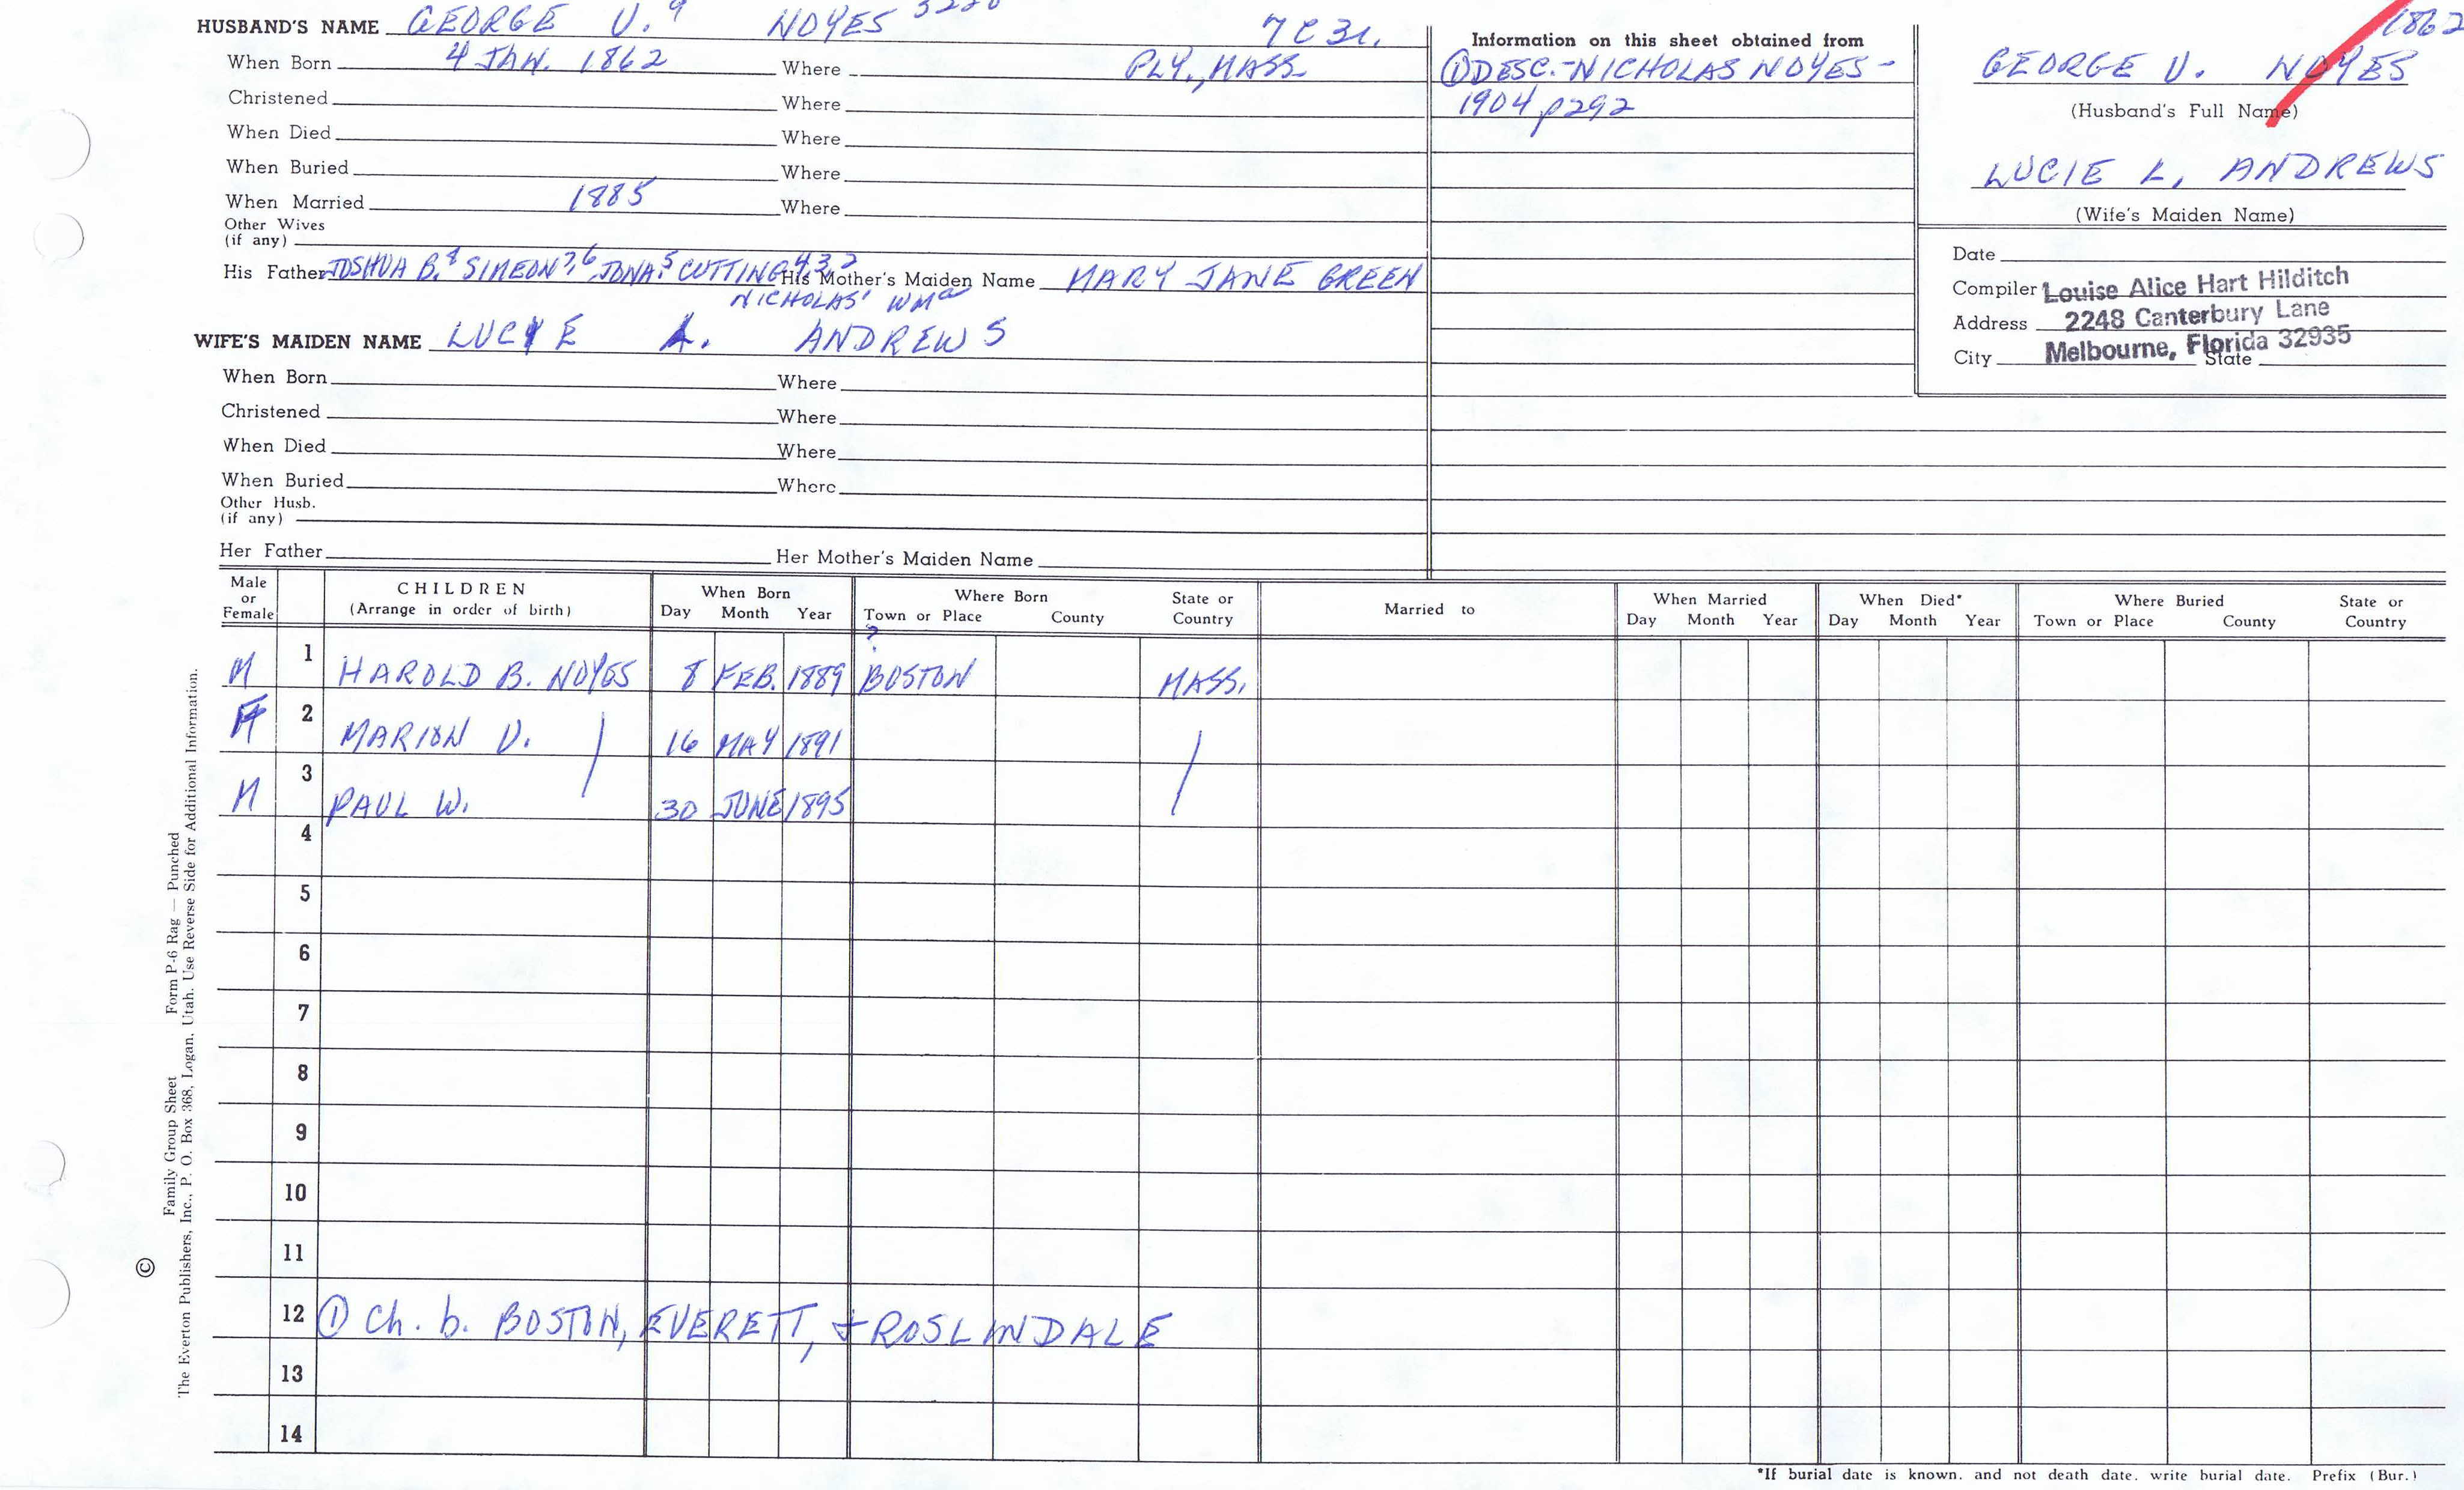 1862
HUSBAND'S NAME GEORGE V.⁹ NOYES 7 C 31.
When Born 4 JAN. 1862 Where PLY., MASS.
Christened Where
When Died Where
When Buried Where
When Married 1885 Where
Other Wives
(if any)
His Father JOSHUA B.⁸ SIMEON⁷,⁶ JONA.⁵ CUTTING⁴,³,² His Mother's Maiden Name MARY JANE GREEN
NICHOLAS¹ WMᵃ
WIFE'S MAIDEN NAME LUCIE L. ANDREWS
When Born Where
Christened Where
When Died Where
When Buried Where
Other Husb.
(if any)
Her Father Her Mother's Maiden Name
Information on this sheet obtained from
① DESC.-NICHOLAS NOYES-
1904 p292
GEORGE V. NOYES
(Husband's Full Name)
LUCIE L. ANDREWS
(Wife's Maiden Name)
Date
Compiler Louise Alice Hart Hilditch
Address 2248 Canterbury Lane
City Melbourne, Florida 32935 State
Male or Female CHILDREN (Arrange in order of birth) When Born Day Month Year Where Born Town or Place County State or Country Married to When Married Day Month Year When Died* Day Month Year Where Buried Town or Place County State or Country
?
M 1 HAROLD B. NOYES 8 FEB. 1889 BOSTON MASS.
F 2 MARION V. 16 MAY 1891
M 3 PAUL W. 30 JUNE 1895
4
5
6
7
8
9
10
11
12 ① Ch. b. BOSTON, EVERETT, + ROSLINDALE
13
14
*If burial date is known, and not death date, write burial date. Prefix (Bur.)
©
Family Group Sheet Form P-6 Rag — Punched
The Everton Publishers, Inc., P. O. Box 368, Logan, Utah. Use Reverse Side for Additional Information.